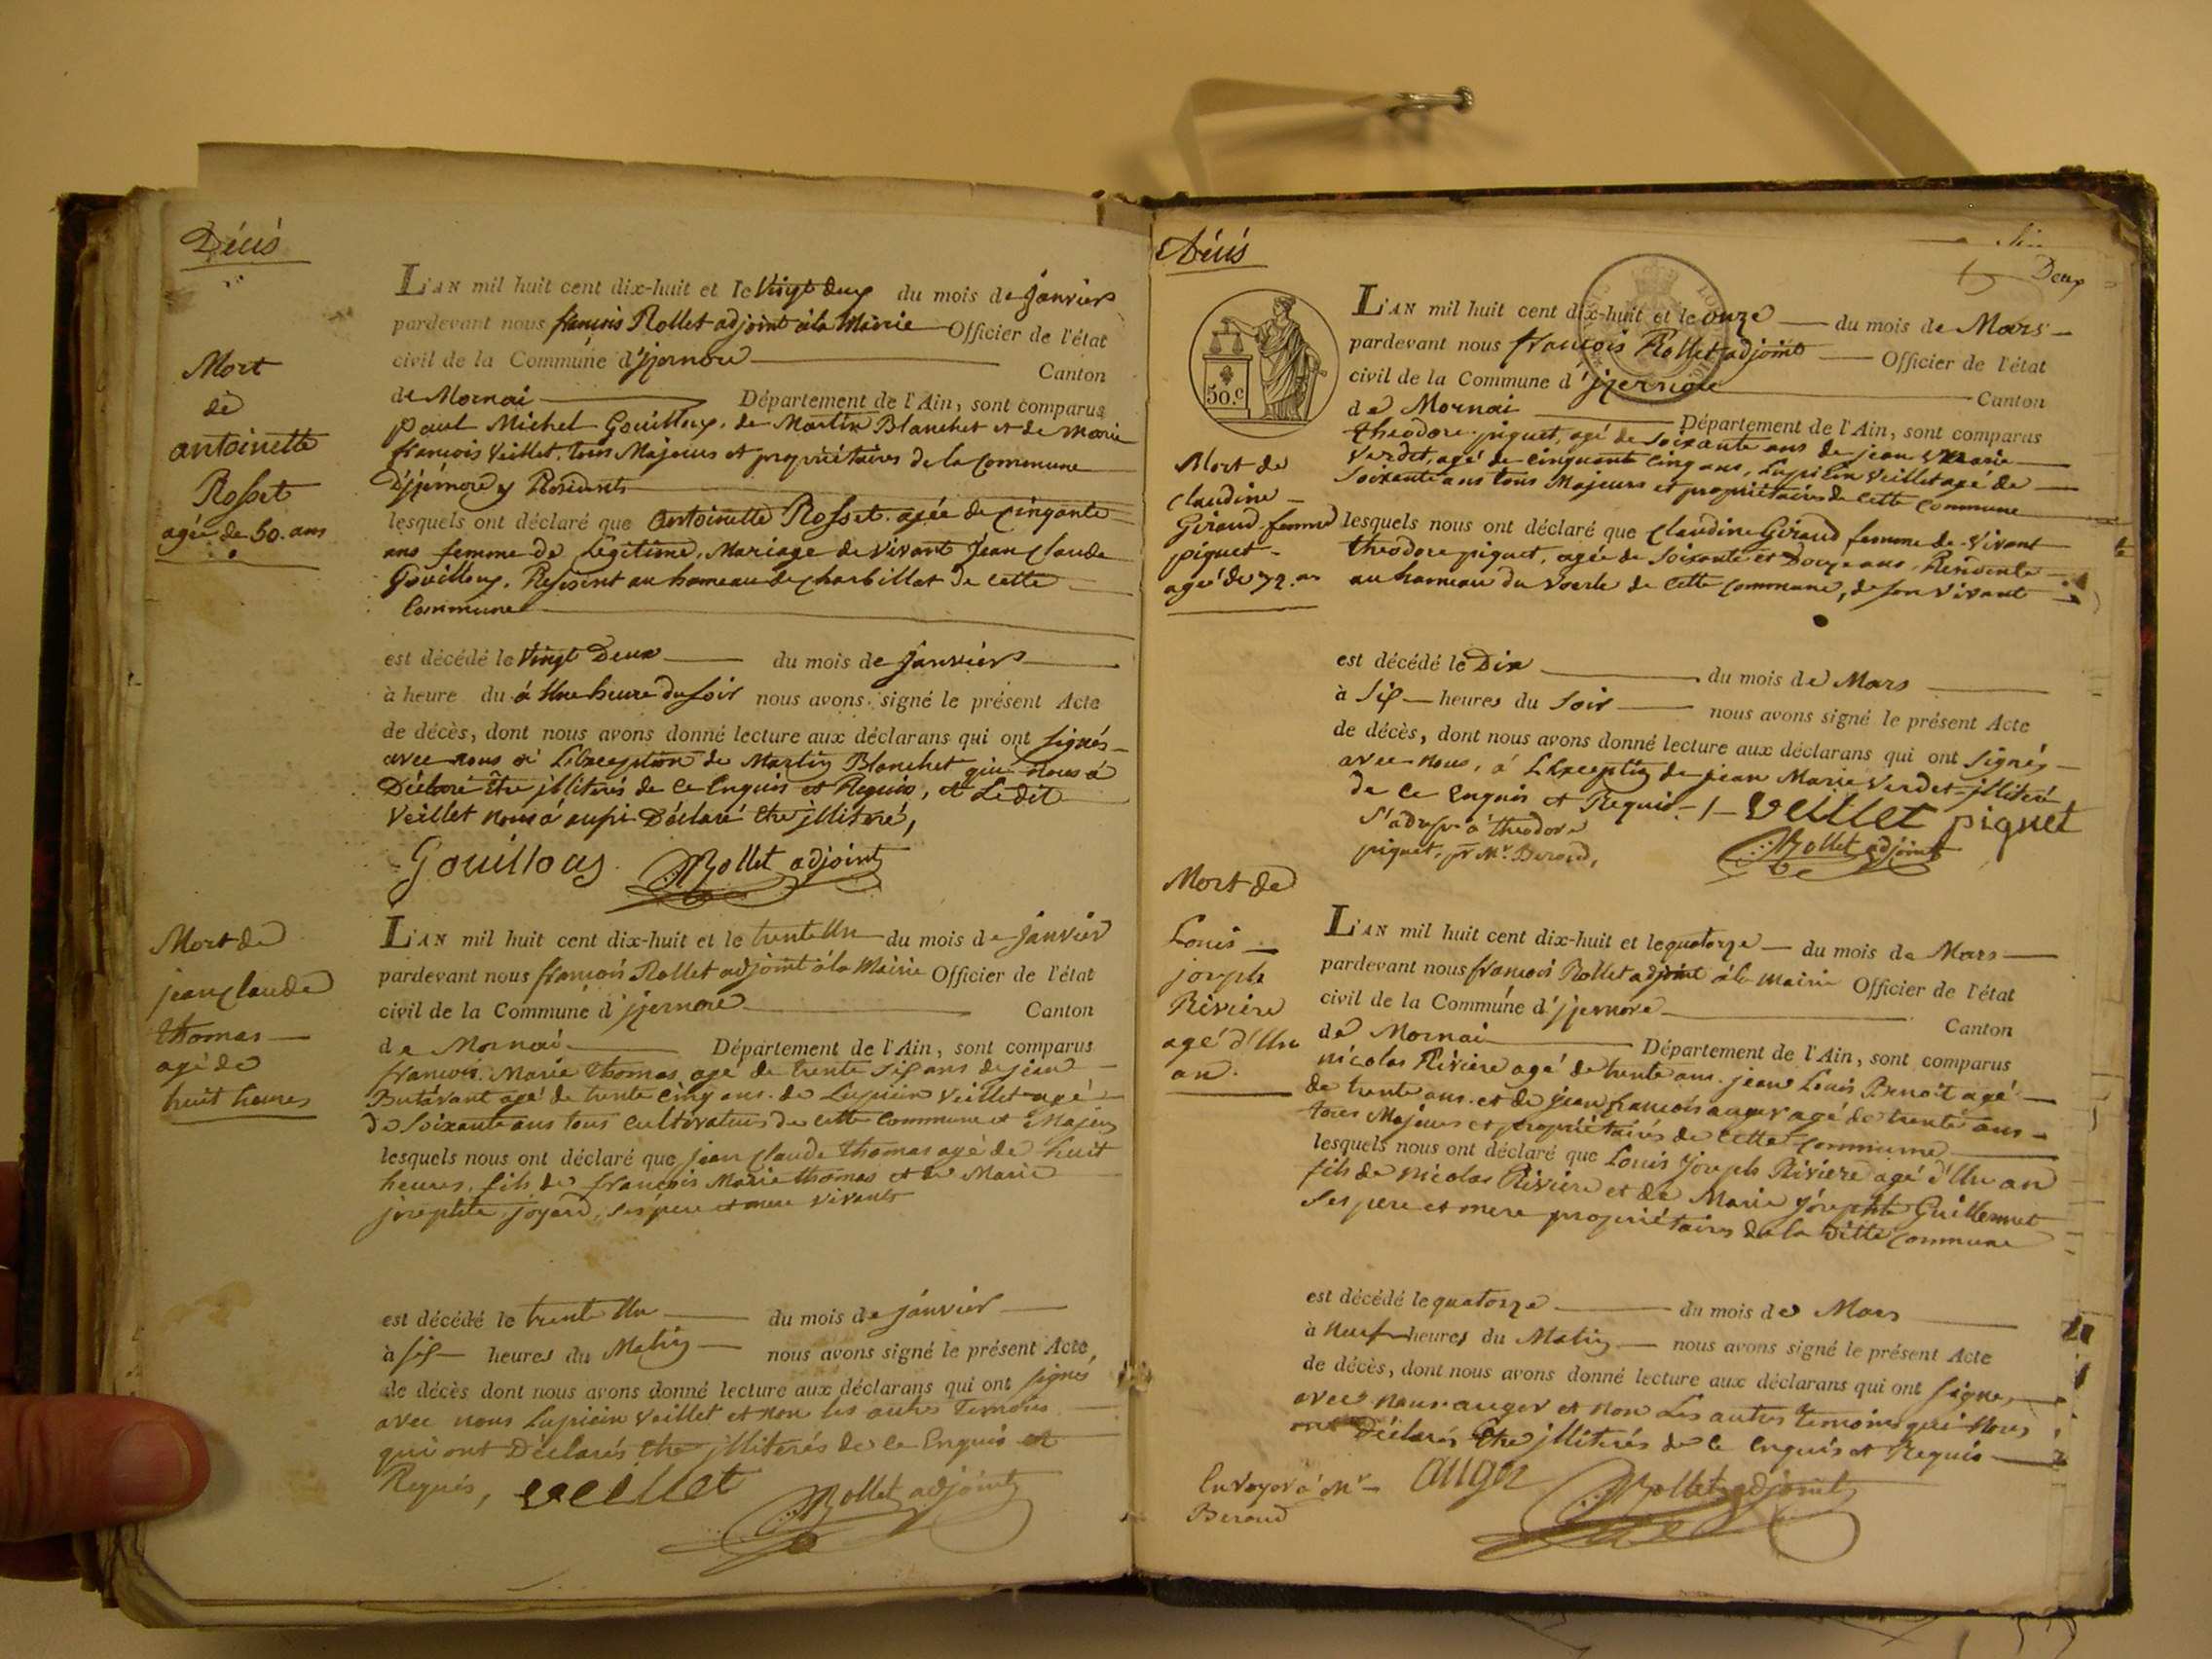 Décès
Mort
de
antoinette
Rosset
agée de 50. ans
L'AN mil huit cent dix-huit et le Vingt deux du mois de janvier
pardevant nous françois Rollet adjoint à la Mairie Officier de l'état
civil de la Commune d'jzernore Canton
de Mornai Département de l'Ain, sont comparus
paul Michel Gouilloux, de Martin Blanchet et de
françois Veillet, tous Majeurs et propriétaires de la commune
D'jzernore y Residents
lesquels ont déclaré que antoinette Rosset. agée de cinqante
ans femme de Légitime, Mariage de vivant jean claude
Gouilloux, Residant au hameau de charbillat de cette
Commune
est décédé le Vingt Deux du mois de janvier
à heure du à Une heure du soir nous avons signé le présent Acte
de décès, dont nous avons donné lecture aux déclarans qui ont signés
avec nous à L'Exception de Martin Blanchet qui nous à
Déclaré être jlliterés de ce Enquis et Requis, et Ledit
Veillet nous à aussi Déclaré être jlliteré,
Gouilloux Rollet adjoint
Mort de
jean claude
thomas
agé de
huit heures
L'AN mil huit cent dix-huit et le trente Un du mois de janvier
pardevant nous françois Rollet adjoint à la Mairie Officier de l'état
civil de la Commune d'jzernore Canton
de Mornai Département de l'Ain, sont comparus
françois Marie thomas agé de trente six ans de jean
Butavant agé de trente cinq ans. de Lupicin Veillet agé
de soixante ans tous cultivateurs de cette commune et Majeurs
lesquels nous ont déclaré que jean claude thomas agé de huit
heures, fils de françois Marie thomas et de Marie
josephte joyard, ses pere et mere vivants
est décédé le trente Un du mois de janvier
à six heures du Matin nous avons signé le présent Acte,
de décès dont nous avons donné lecture aux déclarans qui ont signés
avec nous Lupicin Veillet et non les autres Temoins
qui ont Déclarés être jlliterés de ce Enquis et
Requis, veillet Rollet adjoint
Décès
Deux
50.c
Mort de
claudine
Giraud femme
piquet
agé de 72. ans
L'AN mil huit cent dix-huit et le onze du mois de Mars
pardevant nous françois Rollet adjoint Officier de l'état
civil de la Commune d'jzernore Canton
de Mornai Département de l'Ain, sont comparus
theodore piquet, agé de soixante ans de jean Marie
Verdet, agé de cinquante cinq ans, Lupicin Veillet agé de
soixante ans tous Majeurs et propriétaires de cette commune
lesquels nous ont déclaré que claudine Giraud femme de Vivant
theodore piquet, agée de soixante et Douze ans, Residente
au hameau du Voerle de cette commune, de son vivant
est décédé le Dix du mois de Mars
à six heures du soir nous avons signé le présent Acte
de décès, dont nous avons donné lecture aux déclarans qui ont signés
avec nous, à L'Exception de jean Marie Verdet jlliteré
de ce enquis et Requis veillet piquet
S'adresser à theodore
piquet, pr Mr Beroud, Rollet adjoint
Mort de
Louis
joseph
Riviere
agé d'Un
an.
L'AN mil huit cent dix-huit et le quatorze du mois de Mars
pardevant nous françois Rollet adjoint à la mairie Officier de l'état
civil de la Commune d'jzernore Canton
de Mornai Département de l'Ain, sont comparus
nicolas Riviere agé de trente ans. jean Louis Benoit agé
de trente ans. et de jean françois auger agé de trente ans
tous Majeurs et propriétaires de cette commune
lesquels nous ont déclaré que Louis joseph Riviere agé d'Un an
fils de nicolas Riviere et de Marie josephte Guillermet
ses pere et mere propriétaires de la ditte commune
est décédé le quatorze du mois de Mars
à neuf heures du Matin nous avons signé le présent Acte
de décès, dont nous avons donné lecture aux déclarans qui ont signe,
avec nous auger et non Les autres temoins qui nous
ont Déclarés Etre jlliterés de ce enquis et Requis
Envoyer à Mr auger Rollet adjoint
Beroud